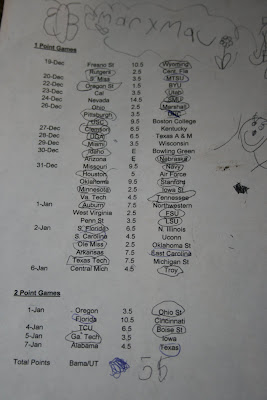 marxmau
1 Point Games
19-Dec Fresno St 10.5 Wyoming
Rutgers 2.5 Cent. Fla
20-Dec S. Miss 3.5 MTSU
22-Dec Oregon St 1.5 BYU
23-Dec Cal 3.5 Utah
24-Dec Nevada 14.5 SMU
26-Dec Ohio 2.5 Marshall
Pittsburgh 3.5
USC 9.5 Boston College
27-Dec Clemson 6.5 Kentucky
28-Dec UGA 6.5 Texas A & M
29-Dec Miami 3.5 Wisconsin
30-Dec Idaho E Bowling Green
Arizona E Nebraska
31-Dec Missouri 9.5 Navy
Houston 5 Air Force
Oklahoma 9.5 Stanford
Minnesota 2.5 Iowa St
Va. Tech 4.5 Tennessee
1-Jan Auburn 7.5 Northwestern
West Virginia 2.5 FSU
Penn St 3.5 LSU
2-Jan S. Florida 6.5 N. Illinois
S. Carolina 4.5 Uconn
Ole Miss 2.5 Oklahoma St
Arkansas 7.5 East Carolina
Texas Tech 7.5 Michigan St
6-Jan Central Mich 4.5 Troy
2 Point Games
1-Jan Oregon 3.5 Ohio St
Florida 10.5 Cincinnati
4-Jan TCU 6.5 Boise St
5-Jan Ga. Tech 3.5 Iowa
7-Jan Alabama 4.5 Texas
Total Points Bama/UT 56